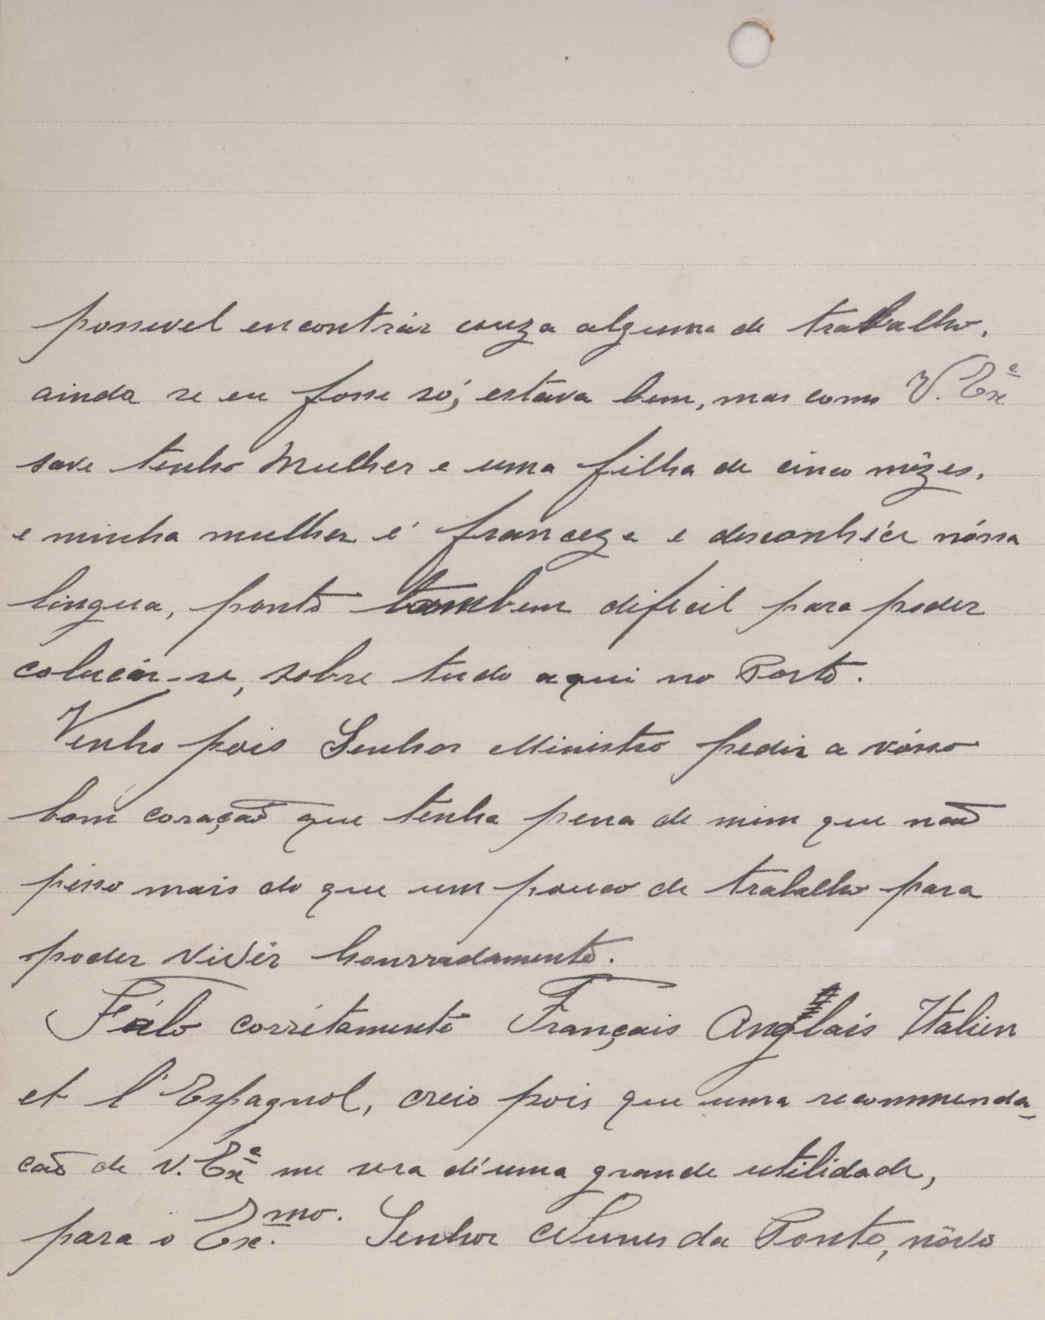 possivel encontrár couza alguma de trabalho,
ainda se eu fosse só, estáva bem, mas como V. Exª
save tenho Mulher e uma filha de cinco mêzes,
e minha mulher é franceza e desconhéce nóssa
lingua, ponto tambem dificil para poder
colucár-se, sobre tudo aqui no Porto.
Venho pois Senhor Ministro pedir a vósso
bom coração que tenha pena de mim que não
pésso mais do que um pouco de trabalho para
poder vivêr honrradamente.
Fálo corrétamente Français Anglais Italien
et l'Espagnol, creio pois que uma recommenda-
cão de V. Exª me sera d'uma grande utilidade,
para o Exmo. Senhor Nunes da Ponte, nôvo